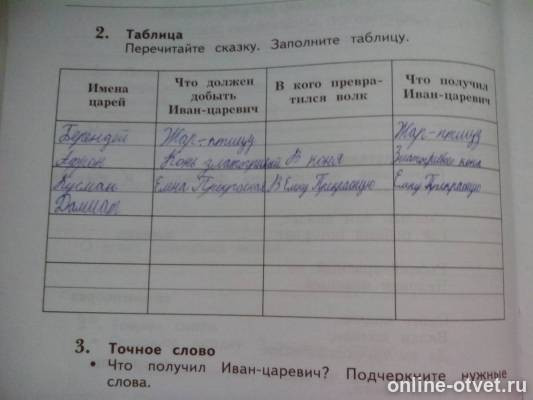 2. Таблица
Перечитайте сказку. Заполните таблицу.
Имена царей
Что должен добыть Иван-царевич
В кого превратился волк
Что получил Иван-царевич
Берендей Жар-птицу Жар-птицу
Афрон Конь златогривый В коня Златогривого коня
Кусман Елена В Елену Прекрасную Елену Прекрасную
Далмат
3. Точное слово
• Что получил Иван-царевич? Подчеркните нужные
слова.
online-otvet.ru